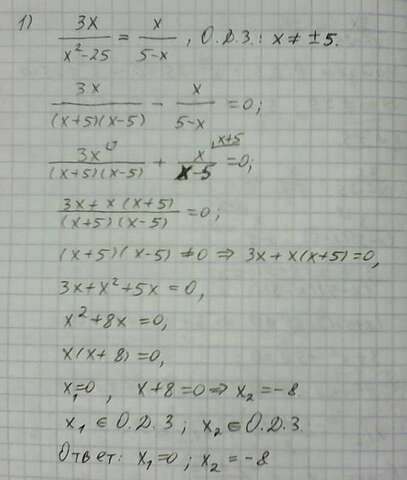 1) 3x/(x²-25) = x/(5-x), О.Д.З.: x ≠ ±5.
3x/((x+5)(x-5)) - x/(5-x) = 0;
3x/((x+5)(x-5)) + x/(x-5) = 0; x+5
(3x+x(x+5))/((x+5)(x-5)) = 0;
(x+5)(x-5) ≠ 0 ⇒ 3x+x(x+5)=0,
3x+x²+5x=0,
x²+8x=0,
x(x+8)=0,
x₁=0, x+8=0 ⇒ x₂=-8
x₁ ∈ О.Д.З; x₂ ∈ О.Д.З.
Ответ: x₁=0; x₂=-8